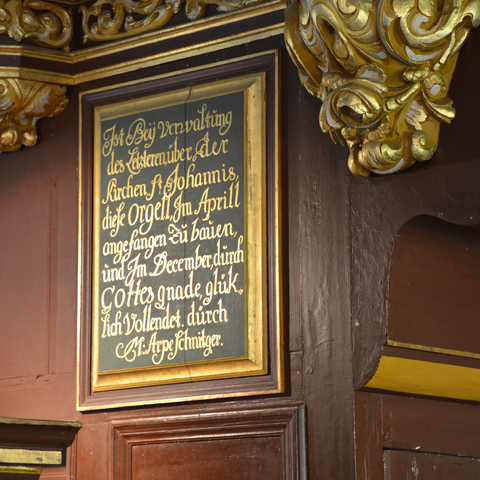 Ist Beÿ Verwaltung
des Letzteren, über, der
Kirchen, St Johannis,
diese Orgell, Im Aprill
angefangen Zu bauen,
und Im December, durch
Gottes gnade, glük„
lich Vollendet. durch
M: Arpe Schnitger.